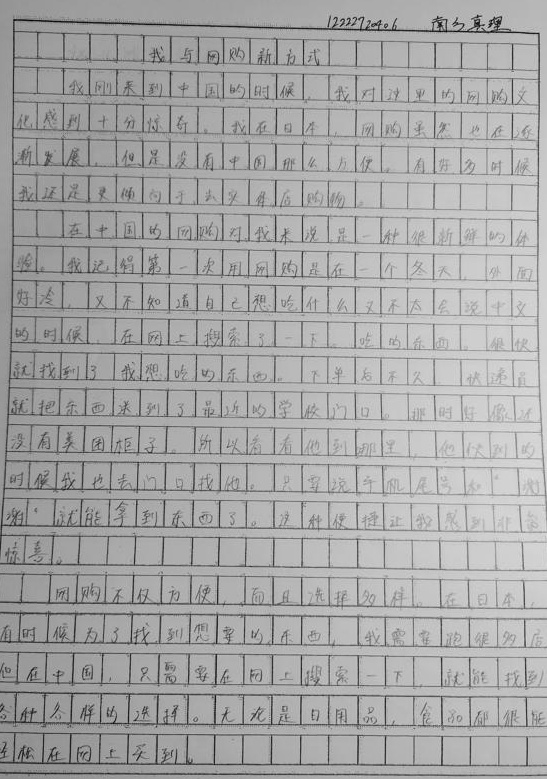 1222720406 南乡真理
我与网购新方式
我刚来到中国的时候，我对这里的网购文
化感到十分惊奇。我在日本，网购虽然也在逐
渐发展，但是没有中国那么方便。有好多时候
我还是更倾向于去实体店购物。
在中国的网购对我来说是一种很新鲜的体
验。我记得第一次用网购是在一个冬天，外面
好冷，又不知道自己想吃什么又不太会说中文
的时候，在网上搜索了一下，吃的东西，很快
就找到了我想吃的东西。下单后不久，快递员
就把东西送到了最近的学校门口。那时好像还
没有美团柜子。所以看看他到哪里，他快到的
时候我也去门口找他。只要说手机尾号和"谢
谢"就能拿到东西了。这种便捷让我感到非常
惊喜。
网购不仅方便，而且选择多样。在日本，
有时候为了找到想要的东西，我需要跑很多店
但在中国，只需要在网上搜索一下，就能找到
各种各样的选择。无论是日用品，食品都很能
轻松在网上买到。